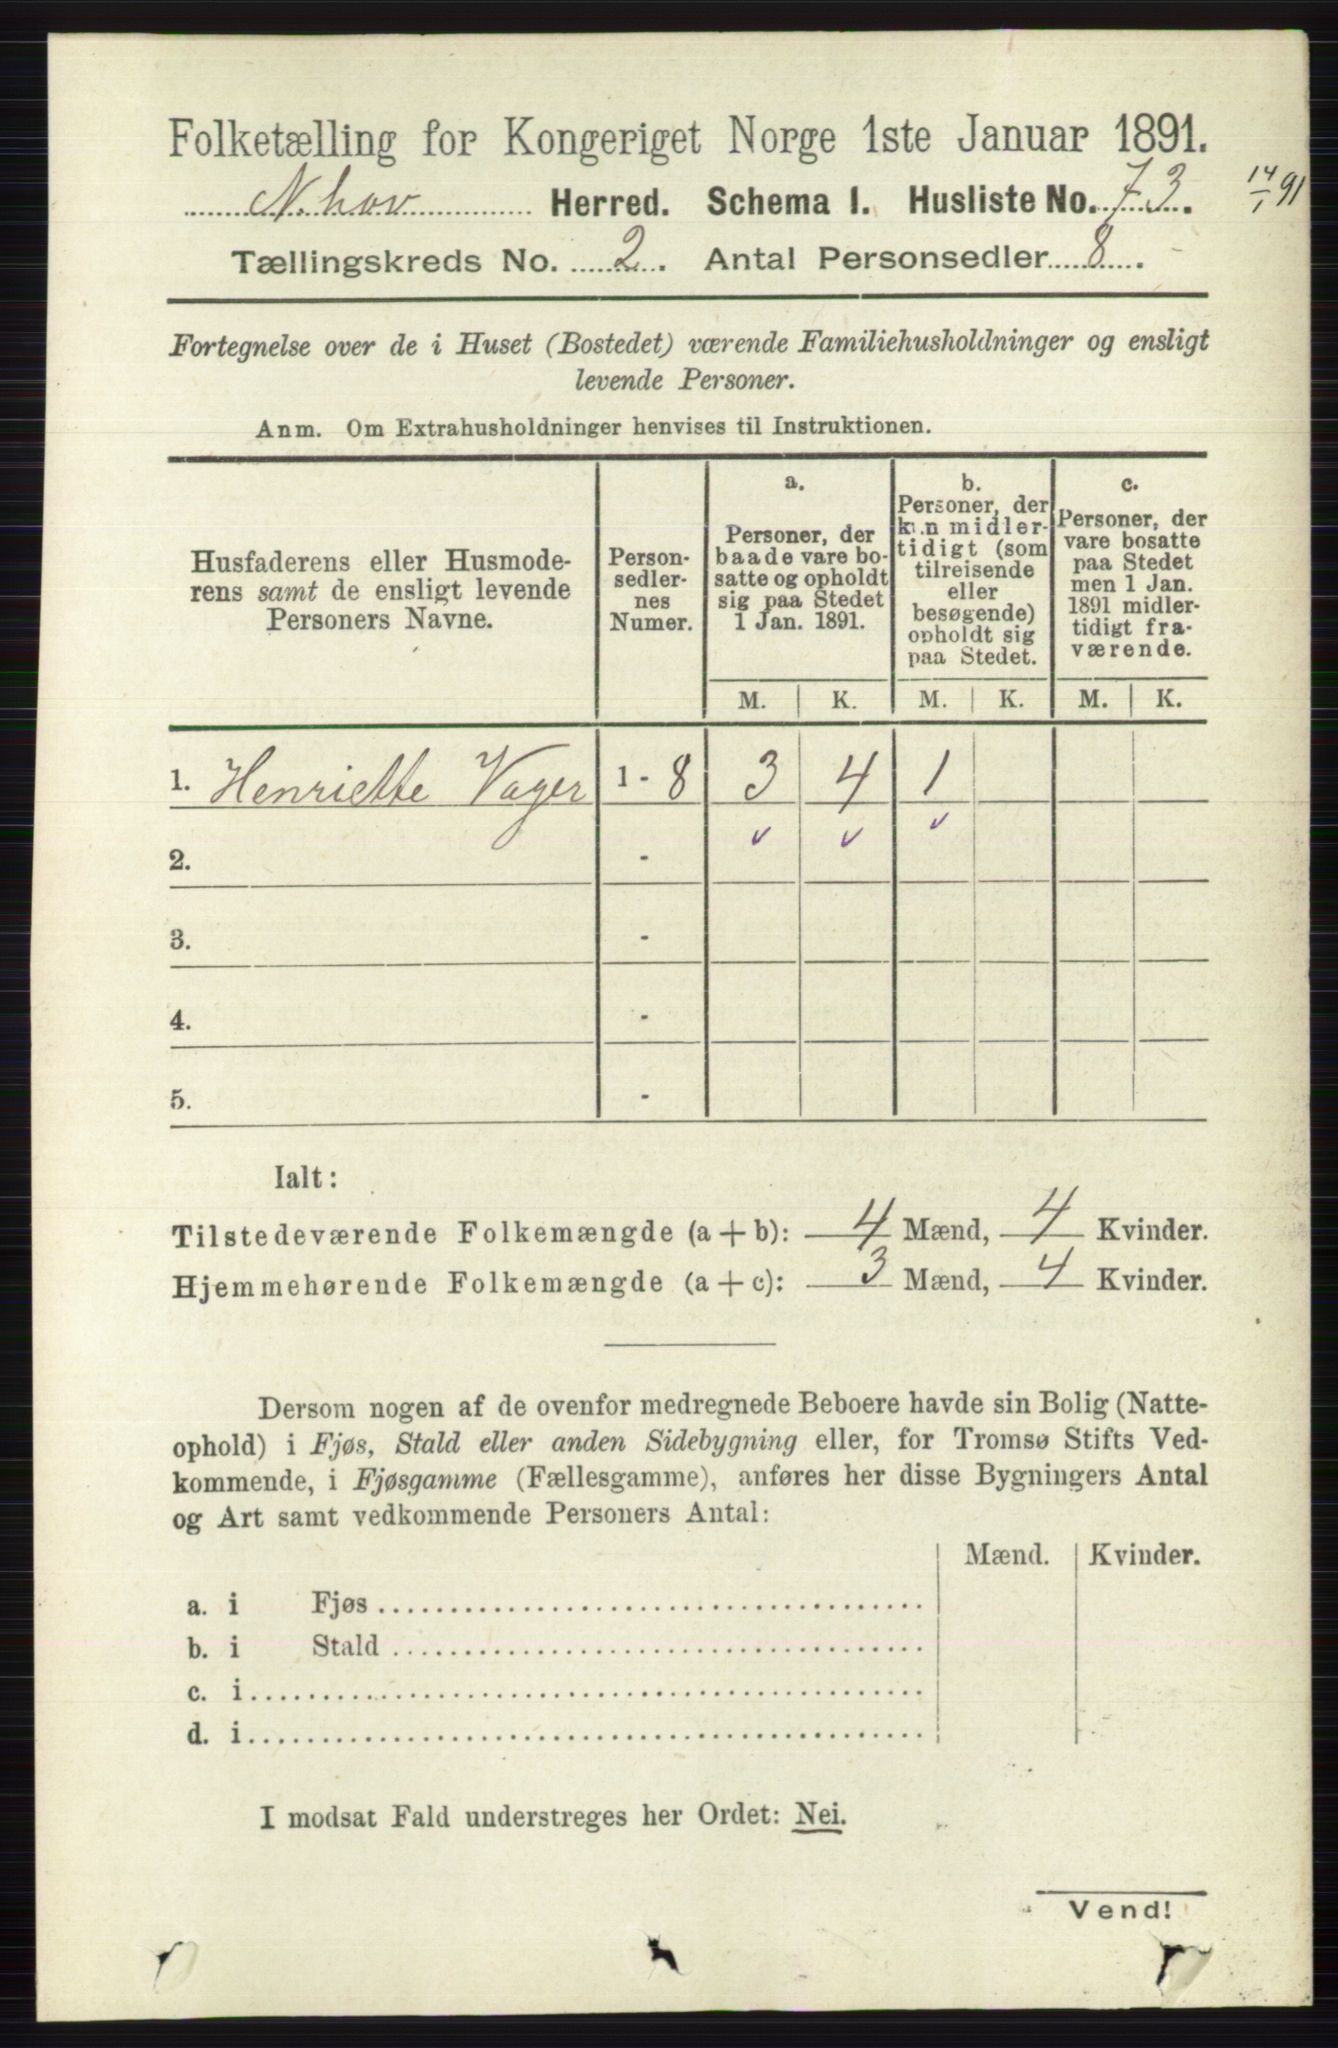 Folketælling for Kongeriget Norge 1ste Januar 1891.
N.hov Herred. Schema I. Husliste No. 73. 14/1 91
Tællingskreds No. 2. Antal Personsedler 8.
Fortegnelse over de i Huset (Bostedet) værende Familiehusholdninger og ensligt
levende Personer.
Anm. Om Extrahusholdninger henvises til Instruktionen.
Husfaderens eller Husmode-
rens samt de ensligt levende
Personers Navne.
Person-
sedler-
nes
Numer.
a.
Personer, der
baade vare bo-
satte og opholdt
sig paa Stedet
1 Jan. 1891.
b.
Personer, der
kun midler-
tidigt (som
tilreisende
eller
besøgende)
opholdt sig
paa Stedet.
c.
Personer, der
vare bosatte
paa Stedet
men 1 Jan.
1891 midler-
tidigt fra-
værende.
M. K. M. K. M. K.
1. Henriette Vager 1 - 8 3 4 1
2. -
3. -
4. -
5. -
Ialt:
Tilstedeværende Folkemængde (a + b): 4 Mænd, 4 Kvinder.
Hjemmehørende Folkemængde (a + c): 3 Mænd, 4 Kvinder.
Dersom nogen af de ovenfor medregnede Beboere havde sin Bolig (Natte-
ophold) i Fjøs, Stald eller anden Sidebygning eller, for Tromsø Stifts Ved-
kommende, i Fjøsgamme (Fællesgamme), anføres her disse Bygningers Antal
og Art samt vedkommende Personers Antal:
Mænd. Kvinder.
a. i Fjøs
b. i Stald
c. i
d. i
I modsat Fald understreges her Ordet: Nei.
Vend!